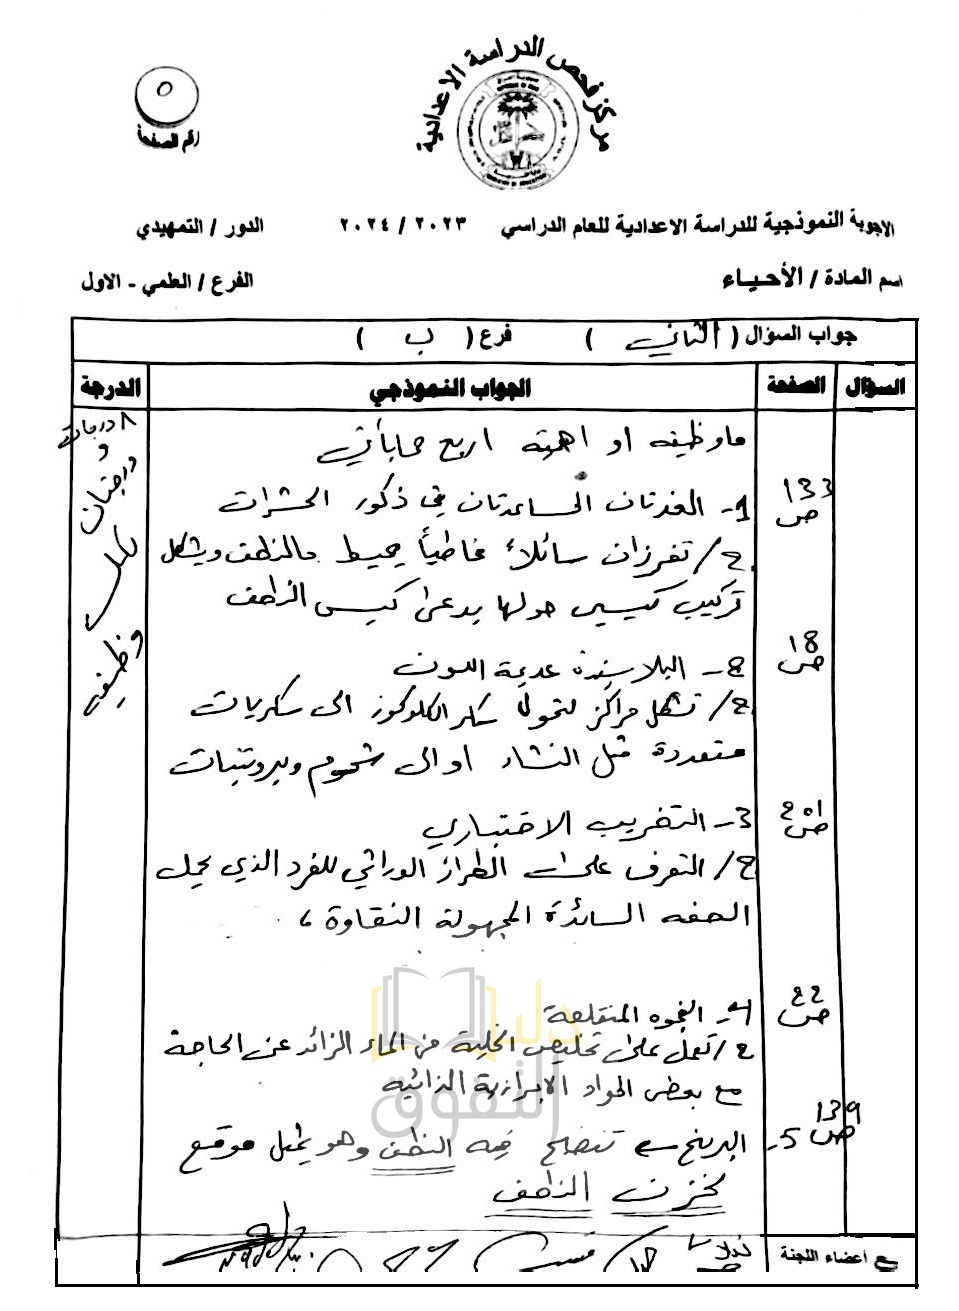 مركز فحص الدراسة الاعدادية
٥
رقم الصفحة
الاجوبة النموذجية للدراسة الاعدادية للعام الدراسي ٢٠٢٣ / ٢٠٢٤ الدور / التمهيدي
اسم المادة / الأحياء الفرع / العلمي - الاول
جواب السؤال ( الثاني ) فرع ( ب )
السؤال الصفحة الجواب النموذجي الدرجة
ما وظيفه او اهمية اربع مما يأتي
٨ درجات
و
درجتان
لكل
وظيفه
133 ص
1- الغدتان المساعدتان في ذكور الحشرات
ج/ تفرزان سائلاً مخاطياً يحيط بالنطف ويشكل
تركيب كيسي حولها يدعى كيس النطف
18 ص
2- البلاستيدة عديمة اللون
ج/ تشكل مراكز لتحول سكر الكلوكوز الى سكريات
متعددة مثل النشاء او الى شحوم وبروتينات
201 ص
3- التضريب الاختباري
ج/ التعرف على الطراز الوراثي للفرد الذي يحمل
الصفه السائدة المجهولة النقاوة ،
22 ص
4- الفجوه المتقلصة
ج/ تعمل على تخليص الخلية من الماء الزائد عن الحاجة
مع بعض المواد الابرازية الذائبه
139 ص
5- البربخ تنضج فيه النطف وهو يمثل موقع
خزن النطف
ع اعضاء اللجنة
دليل التفوق